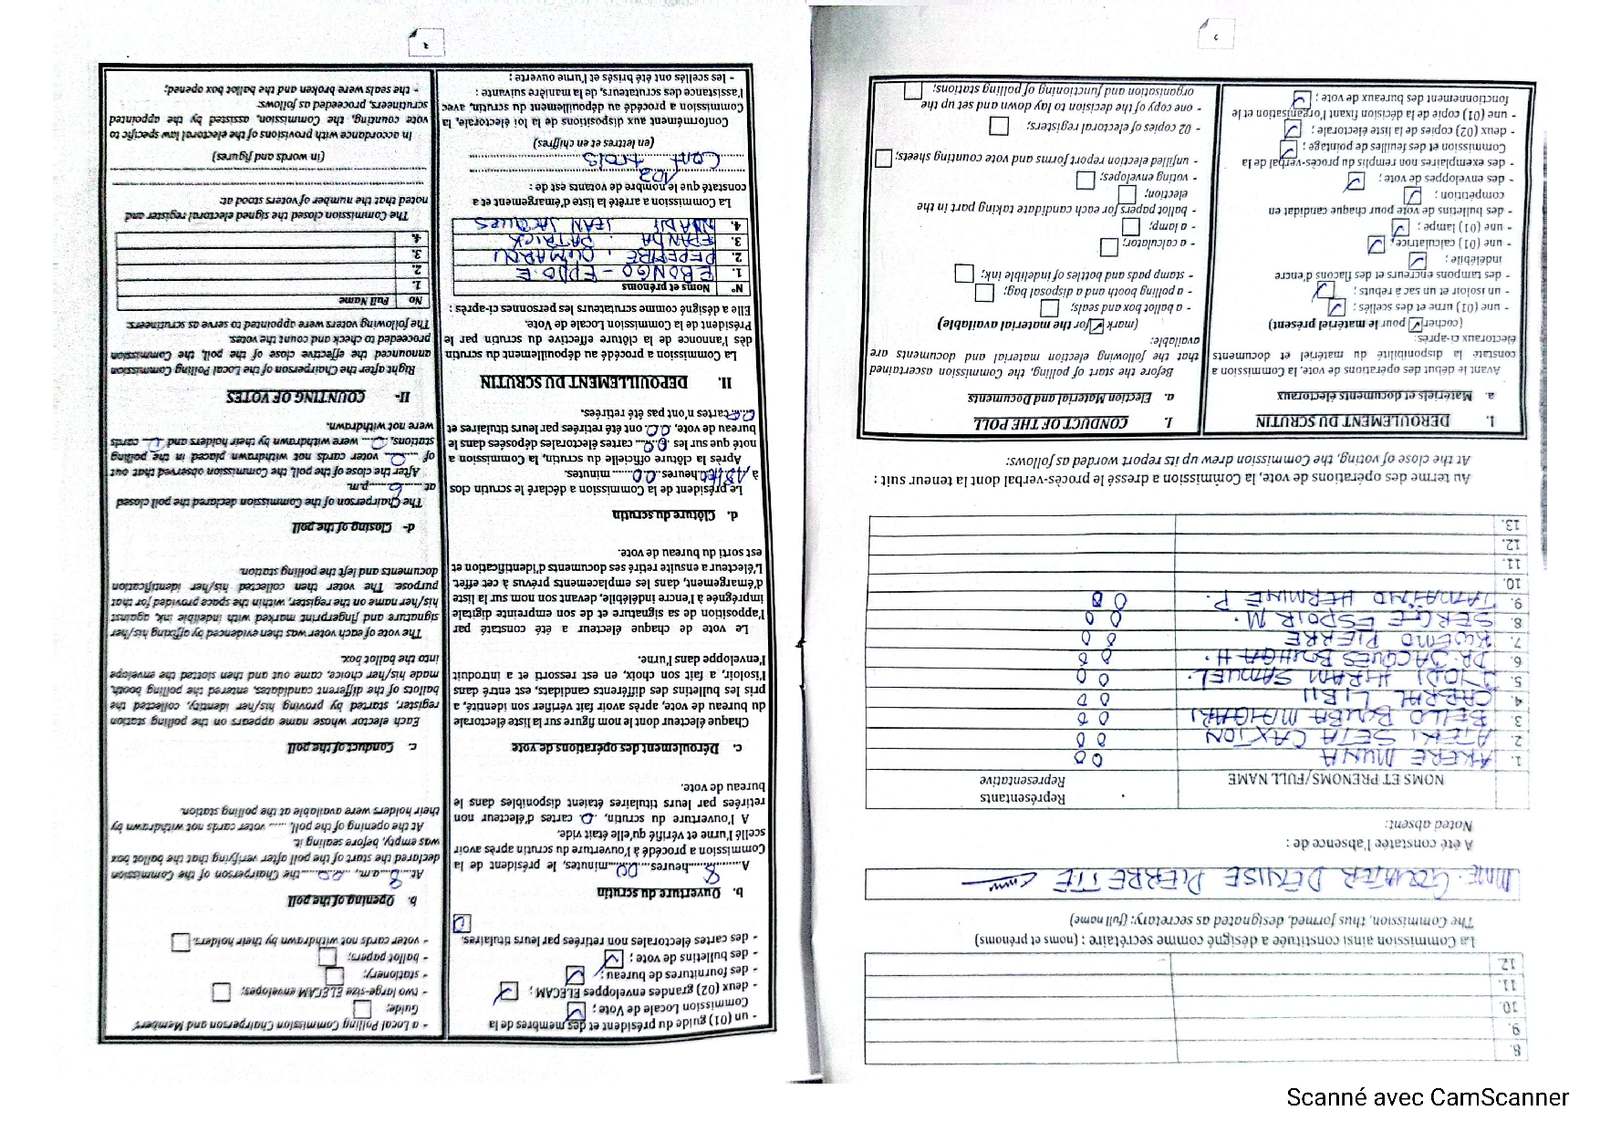 8.
9.
10.
11.
12.
La Commission ainsi constituée a désigné comme secrétaire : (noms et prénoms)
The Commission, thus formed, designated as secretary: (full name)
Mme. DENISE PIERRETTE
A été constatée l'absence de :
Noted absent:
NOMS ET PRENOMS/FULL NAME
Représentants
Representative
1. AKERE MUNA 00
2. ATEKI SETA CAXTON 00
3. BELLO BOUBA MAIGARI 00
4. CABRAL LIBII 00
5. IYODI HIRAM SAMUEL. 00
6. DR. JACQUES BOUGHA H. 00
7. KWEMO PIERRE 00
8. SERGE ESPOIR M. 00
9. TAMAINO HERMINE P. 00
10.
11.
12.
13.
Au terme des opérations de vote, la Commission a dressé le procès-verbal dont la teneur suit :
At the close of voting, the Commission drew up its report worded as follows:
I. DEROULEMENT DU SCRUTIN
a. Matériels et documents électoraux
Avant le début des opérations de vote, la Commission a
constaté la disponibilité du matériel et documents
électoraux ci-après:
(cocher ✓ pour le matériel présent)
- une (01) urne et des scellés;
- un isoloir et un sac à rebuts;
- des tampons encreurs et des flacons d'encre
indélébile;
- une (01) calculatrice;
- une (01) lampe;
- des bulletins de vote pour chaque candidat en
compétition;
- des enveloppes de vote;
- des exemplaires non remplis du procès-verbal de la
Commission et des feuilles de pointage;
- deux (02) copies de la liste électorale;
- une (01) copie de la décision fixant l'organisation et le
fonctionnement des bureaux de vote;
I. CONDUCT OF THE POLL
a. Election Material and Documents
Before the start of polling, the Commission ascertained
that the following election material and documents are
available:
(mark ✓ for the material available)
- a ballot box and seals;
- a polling booth and a disposal bag;
- stamp pads and bottles of indelible ink;
- a calculator;
- a lamp;
- ballot papers for each candidate taking part in the
election;
- voting envelopes;
- unfilled election report forms and vote counting sheets;
- 02 copies of electoral registers;
- one copy of the decision to lay down and set up the
organisation and functioning of polling stations;
2
- un (01) guide du président et des membres de la
Commission Locale de Vote;
- deux (02) grandes enveloppes ELECAM;
- des fournitures de bureau;
- des bulletins de vote;
- des cartes électorales non retirées par leurs titulaires.
b. Ouverture du scrutin
A 8 heures 00 minutes, le président de la
Commission a procédé à l'ouverture du scrutin après avoir
scellé l'urne et vérifié qu'elle était vide.
A l'ouverture du scrutin, 0 cartes d'électeur non
retirées par leurs titulaires étaient disponibles dans le
bureau de vote.
c. Déroulement des opérations de vote
Chaque électeur dont le nom figure sur la liste électorale
du bureau de vote, après avoir fait vérifier son identité, a
pris les bulletins des différents candidats, est entré dans
l'isoloir, a fait son choix, en est ressorti et a introduit
l'enveloppe dans l'urne.
Le vote de chaque électeur a été constaté par
l'apposition de sa signature et de son empreinte digitale
imprégnée à l'encre indélébile, devant son nom sur la liste
d'émargement, dans les emplacements prévus à cet effet.
L'électeur a ensuite retiré ses documents d'identification et
est sorti du bureau de vote.
d. Clôture du scrutin
Le président de la Commission a déclaré le scrutin clos
à 18 heures 00 minutes.
Après la clôture officielle du scrutin, la Commission a
noté que sur les 00 cartes électorales déposées dans le
bureau de vote, 00 ont été retirées par leurs titulaires et
00 cartes n'ont pas été retirées.
II. DEPOUILLEMENT DU SCRUTIN
La Commission a procédé au dépouillement du scrutin
dès l'annonce de la clôture effective du scrutin par le
Président de la Commission Locale de Vote.
Elle a désigné comme scrutateurs les personnes ci-après :
N° Noms et prénoms
1. EBONGO - EDDO E
2. OUMAROU
3. EPANDA . PATRICK
4. JEAN JACQUES
La Commission a arrêté la liste d'émargement et a
constaté que le nombre de votants est de :
103
Cent trois
(en lettres et en chiffres)
Conformément aux dispositions de la loi électorale, la
Commission a procédé au dépouillement du scrutin, avec
l'assistance des scrutateurs, de la manière suivante :
- les scellés ont été brisés et l'urne ouverte :
- a Local Polling Commission Chairperson and Members'
Guide;
- two large-size ELECAM envelopes;
- stationery;
- ballot papers;
- voter cards not withdrawn by their holders.
b. Opening of the poll
At 8 a.m, the Chairperson of the Commission
declared the start of the poll after verifying that the ballot box
was empty, before sealing it.
At the opening of the poll, ...... voter cards not withdrawn by
their holders were available at the polling station.
c. Conduct of the poll
Each elector whose name appears on the polling station
register, started by proving his/her identity, collected the
ballots of the different candidates, entered the polling booth,
made his/her choice, came out and then slotted the envelope
into the ballot box.
The vote of each voter was then evidenced by affixing his/her
signature and fingerprint marked with indelible ink, against
his/her name on the register, within the space provided for that
purpose. The voter then collected his/her identification
documents and left the polling station.
d- Closing of the poll
The Chairperson of the Commission declared the poll closed
at 6 p.m.
After the close of the poll, the Commission observed that out
of 0 voter cards not withdrawn placed in the polling
stations, 0 were withdrawn by their holders and cards
were not withdrawn.
II- COUNTING OF VOTES
Right after the Chairperson of the Local Polling Commission
announced the effective close of the poll, the Commission
proceeded to check and count the votes.
The following voters were appointed to serve as scrutineers:
No Full Name
1.
2.
3.
4.
The Commission closed the signed electoral register and
noted that the number of voters stood at:
(in words and figures)
In accordance with provisions of the electoral law specific to
vote counting, the Commission, assisted by the appointed
scrutineers, proceeded as follows:
- the seals were broken and the ballot box opened;
3
Scanné avec CamScanner